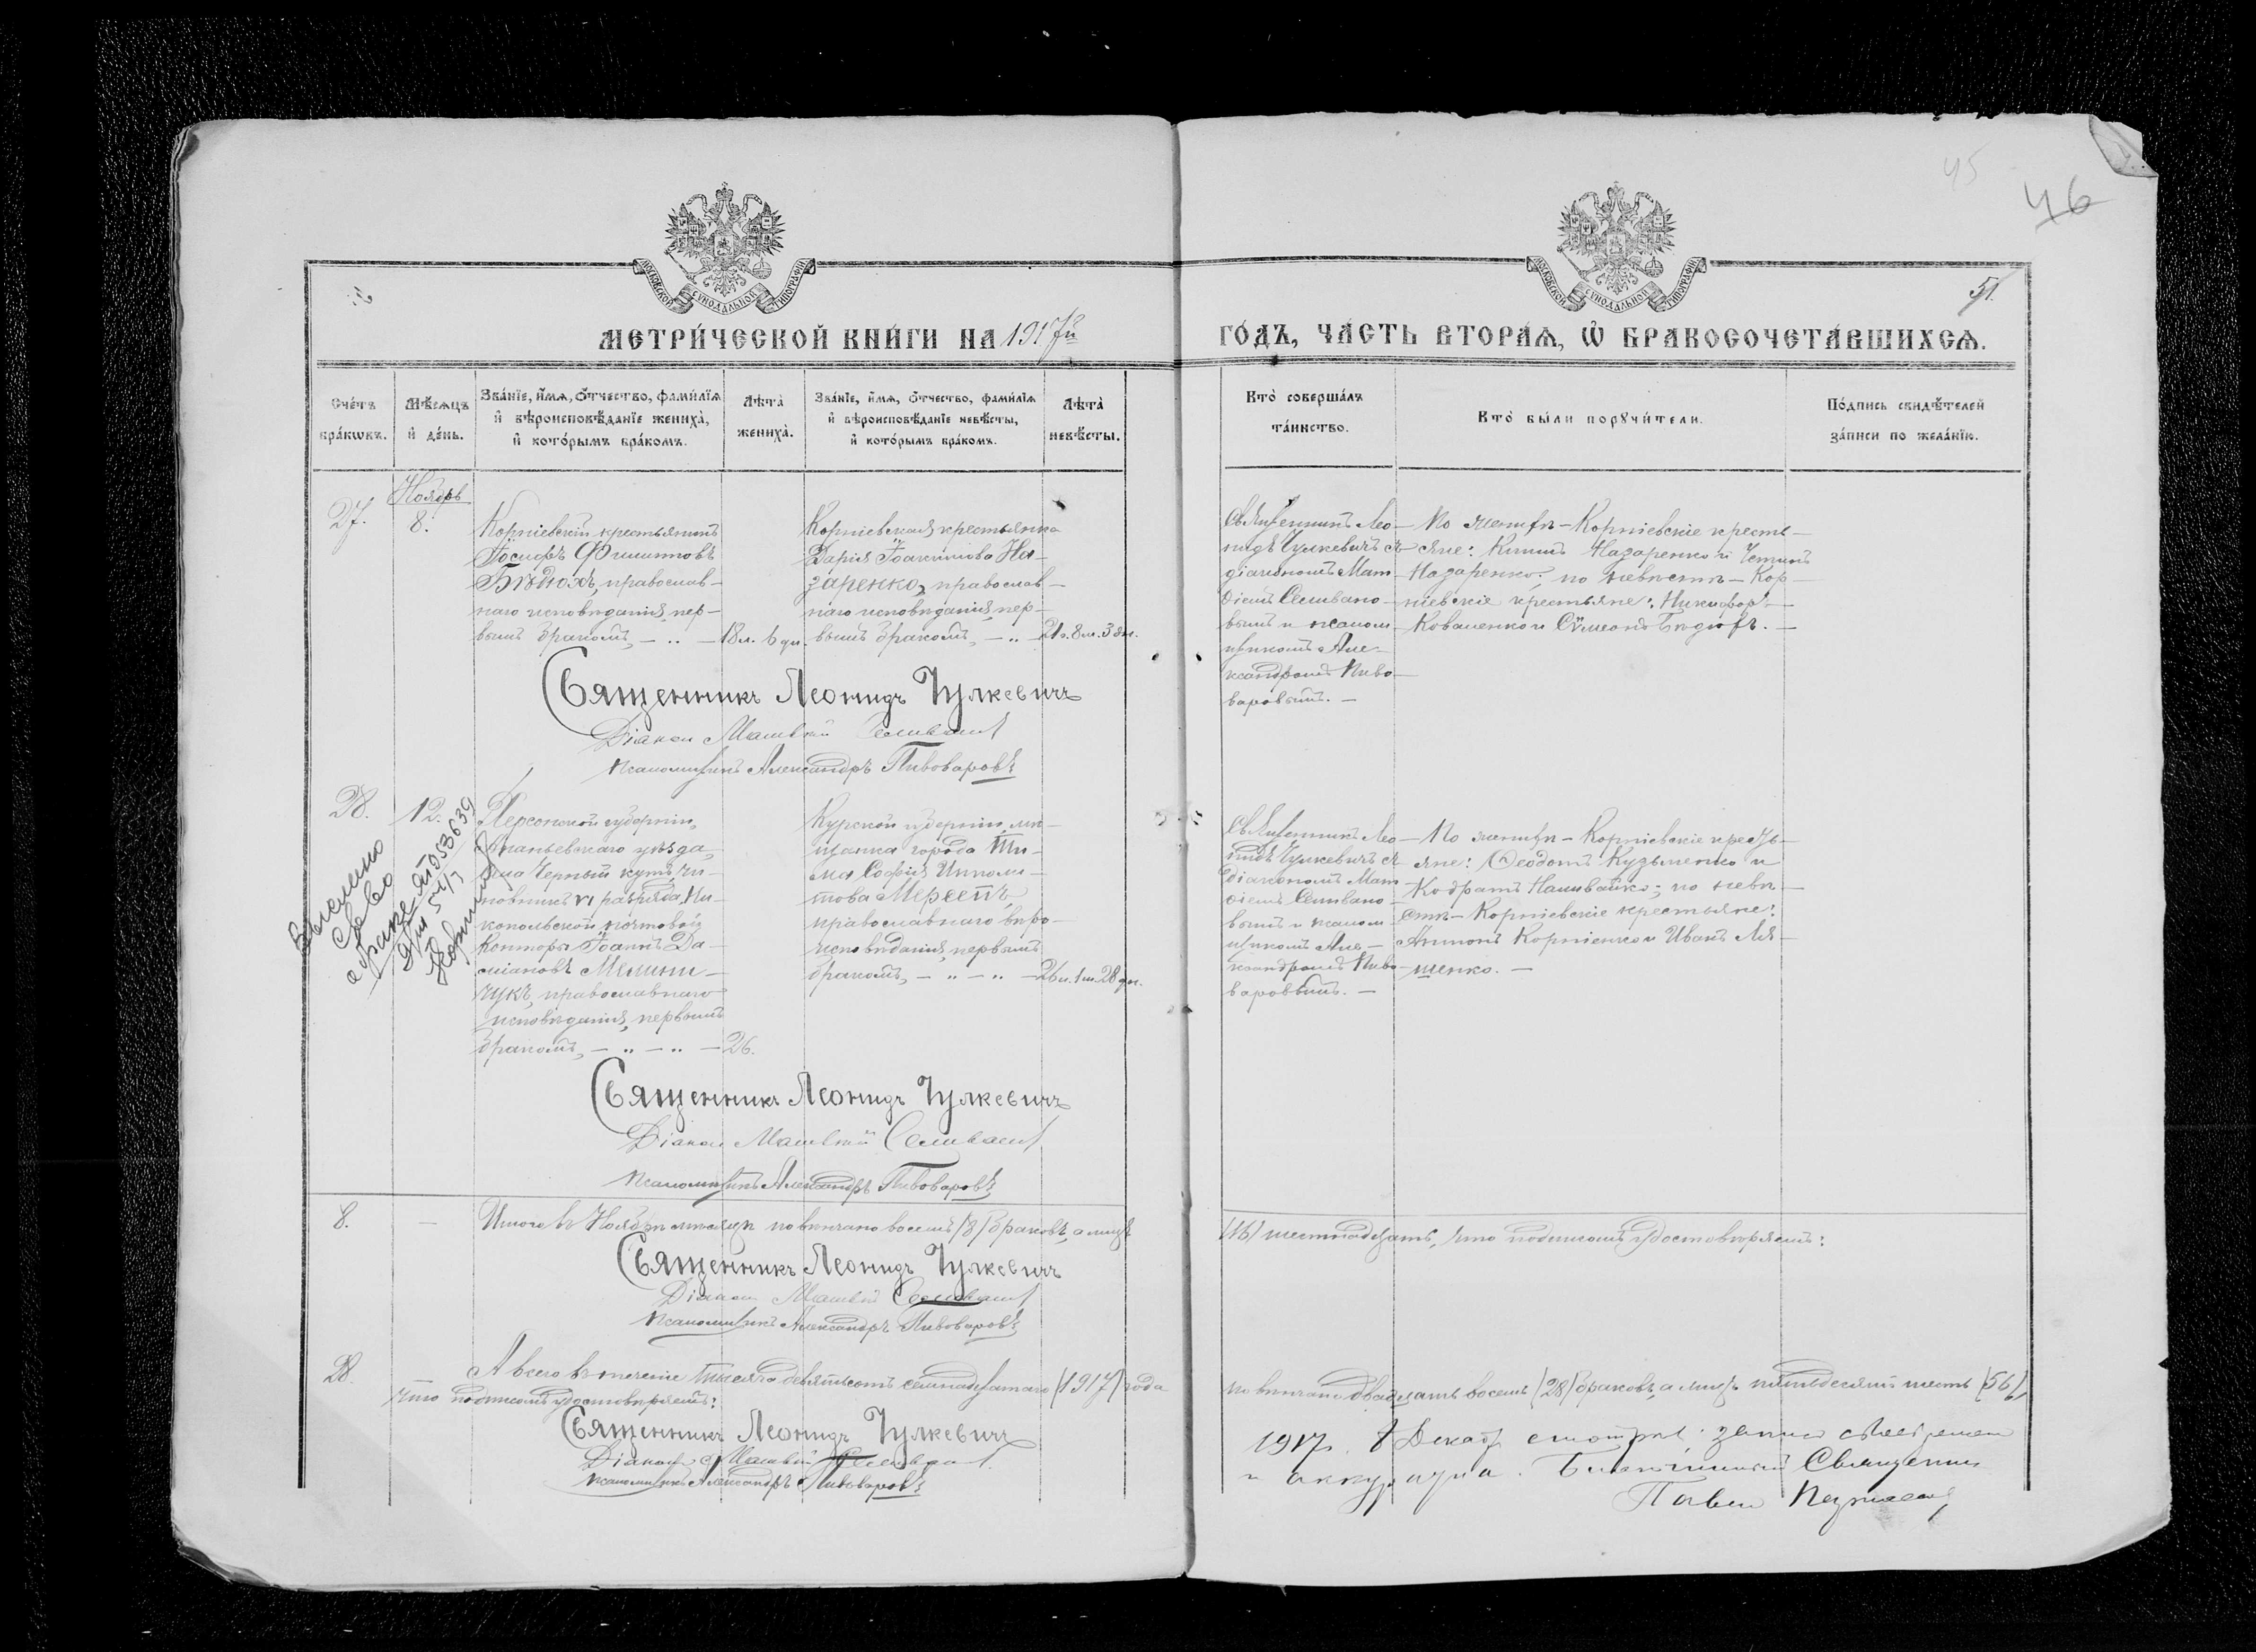 45
46
51.
МОСКОВСКОЙ СѴНОДАЛЬНОЙ ТИПОГРАФІИ
МОСКОВСКОЙ СѴНОДАЛЬНОЙ ТИПОГРАФІИ
МЕТРИ́ЧЕСКОЙ КНИ́ГИ НА 1917й
ГО́ДЪ, ЧА́СТЬ ВТОРА́Ѧ, Ѽ БРАКОСОЧЕТА́ВШИХСѦ.
Сче́тъ бра́кѡвъ.
Мѣ́сѧцъ и҆ де́нь.
Зва́нїе, и҆́мѧ, ѻ҆́тчество, фами́лїѧ и҆ вѣроисповѣ́данїе жениха̀, и҆ кото́рымъ бра́комъ.
Лѣта̀ жениха̀.
Зва́нїе, и҆́мѧ, ѻ҆́тчество, фами́лїѧ и҆ вѣроисповѣ́данїе невѣ́сты, и҆ кото́рымъ бра́комъ.
Лѣта̀ невѣ́сты.
Кто̀ соверша́лъ та́инство.
Кто̀ бы́ли порꙋчи́тели.
По́дпись свидѣ́телей за́писи по жела́нїю.
Ноябрь
27.
8.
Корніевскій крестьянинъ
Іосифъ Филипповъ
Бѣдюхъ, православ-
наго исповѣданія, пер-
вымъ бракомъ, — „ — 18 л. 6 дн.
Корніевская крестьянка
Дарія Іоакимова На-
заренко, православ-
наго исповѣданія, пер-
вымъ бракомъ, — „ — 21 г. 8 м. 3 дн.
Священникъ Лео-
нидъ Чулкевичъ съ
діакономъ Мат-
ѳіемъ Селивано-
вымъ и псалом-
щикомъ Але-
ксандромъ Пиво-
варовымъ. —
По женихѣ — Корніевскіе кресть-
яне: Назаренко и
Назаренко; по невѣстѣ — Кор-
ніевскіе крестьяне: Никифоръ
Коваленко и Сѷмеонъ Бѣдюхъ. —
Священникъ Леонидъ Чулкевичъ
Діаконъ Матвій Селиванов
Псаломщикъ Александръ Пивоваровъ
28.
12.
Выслано
св-во
о браке
Херсонской губерніи,
Ананьевскаго уѣзда,
села Черный кутъ, чи-
новникъ VI разряда, Ни-
копольской почтовой
конторы Іоаннъ Да-
міановъ Мельни-
чукъ, православнаго
исповѣданія, первымъ
бракомъ, — „ — „ — 26.
Курской губерніи, мѣ-
щанка города Ти-
ма Софія Ипполи-
това Мерсетъ,
православнаго вѣро-
исповѣданія, первымъ
бракомъ, — „ — „ — 26 л. 1 м. 28 дн.
Священникъ Лео-
нидъ Чулкевичъ съ
діакономъ Мат-
ѳіемъ Селивано-
вымъ и псалом-
щикомъ Але-
ксандромъ Пиво-
варовымъ. —
По женихѣ — Корніевскіе кресть-
яне: Ѳеодотъ Кузьменко и
Кодратъ Наливайко; по невѣ-
стѣ — Корніевскіе крестьяне:
Антонъ Корніенко и Иванъ Ля-
шенко. —
Священникъ Леонидъ Чулкевичъ
Діаконъ Матвій Селиванов
Псаломщикъ Александръ Пивоваровъ
8. — Итого въ Ноябрѣ мѣсяцѣ повѣнчано восемь /8/ браковъ, а лицъ
/16/ шестнадцать, что подписомъ удостовѣряемъ:
Священникъ Леонидъ Чулкевичъ
Діаконъ Матвій Селиванов
Псаломщикъ Александръ Пивоваровъ
28. А всего въ теченіе тысяча девятьсотъ семнадцатаго /1917/ года
повѣнчано двадцать восемь /28/ браковъ, а лицъ пятьдесятъ шесть /56/,
что подписомъ удостовѣряемъ:
Священникъ Леонидъ Чулкевичъ
Діаконъ Матвій Селиванов
Псаломщикъ Александръ Пивоваровъ
1917 г. 8 Декабр
и аккуратна. Благочинный Священник
Павел